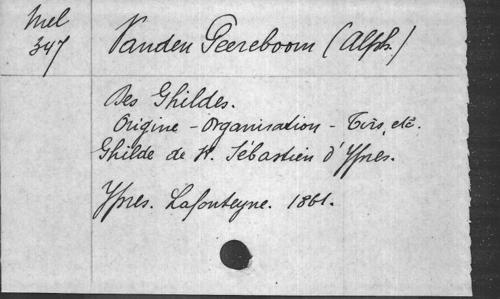 Mel
347
Vanden Peereboom (Alph.)
Des Ghildes.
Origine - Organisation - Tirs, etc.
Ghilde de St. Sébastien d'Ypres.
Ypres. Lafonteyne. 1861.